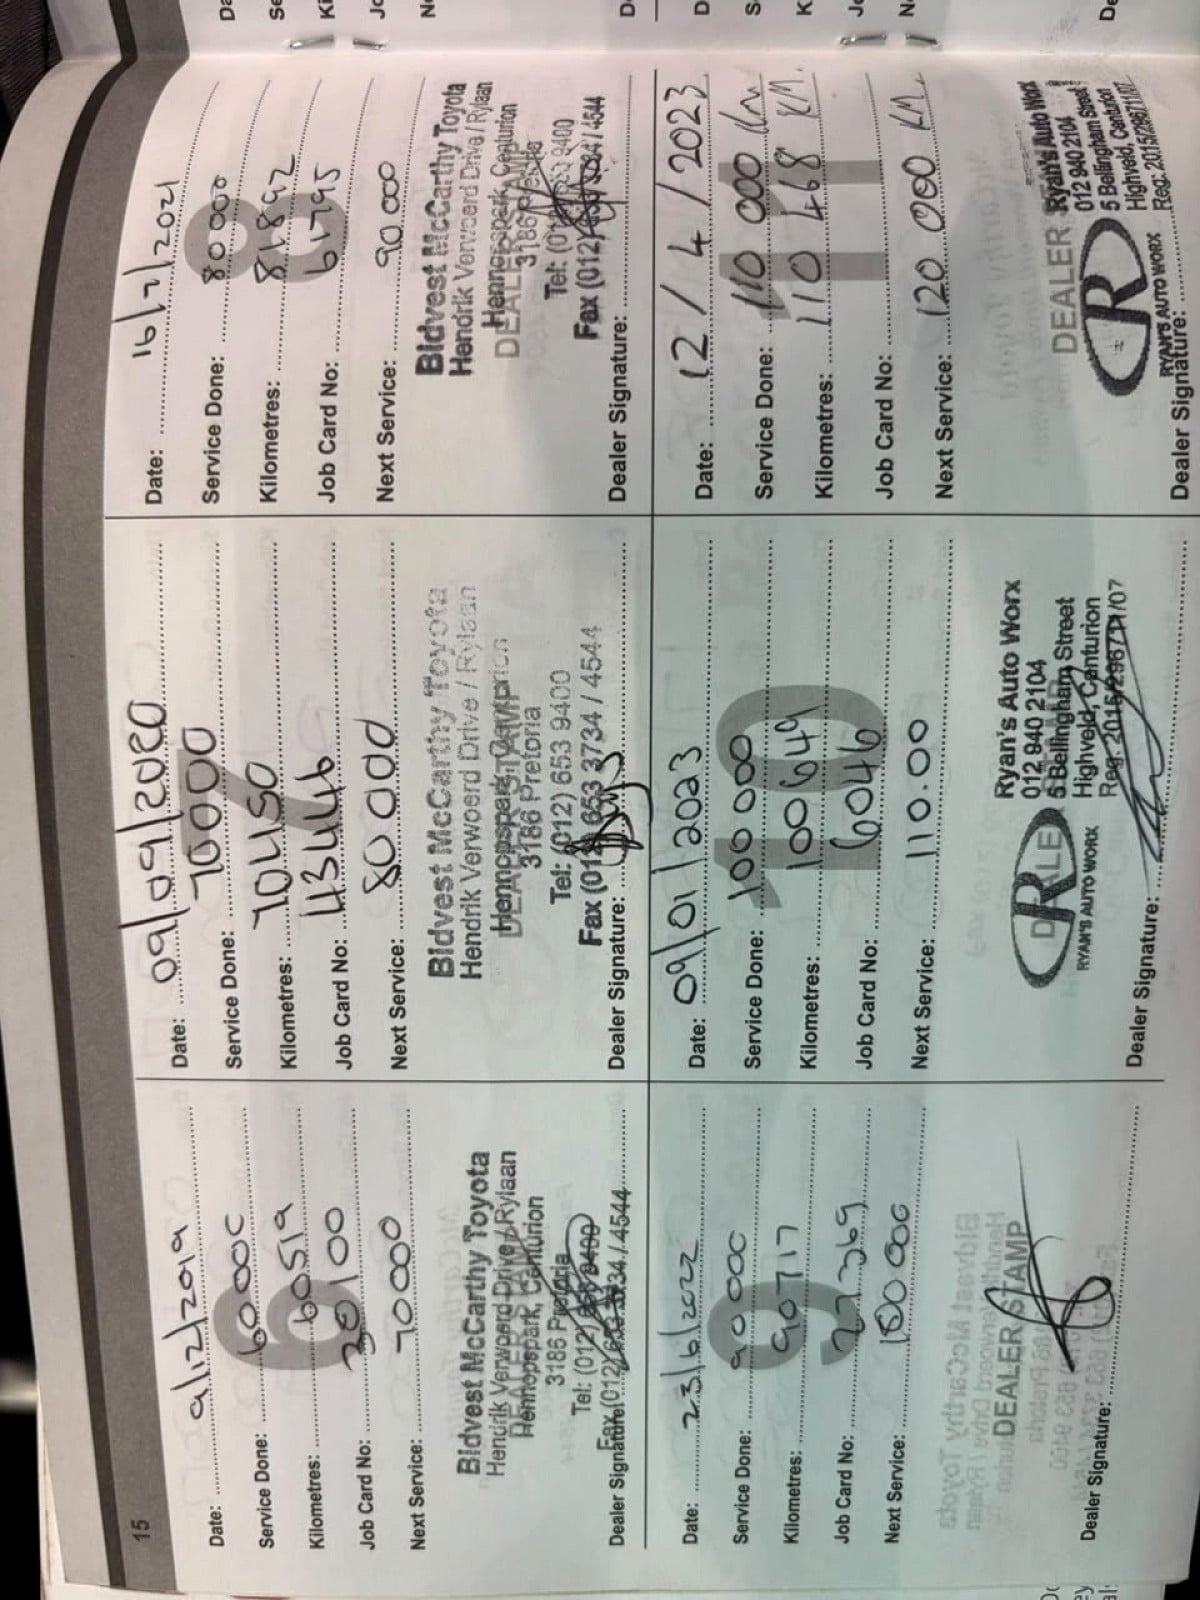 15
Date: 9/12/2019
Service Done: 60000
6
Kilometres: 60519
Job Card No: 30100
Next Service: 70000
Bidvest McCarthy Toyota
Hendrik Verwoerd Drive / Rylaan
Hennopspark, Centurion
3186 Pretoria
Tel: (012) 653 9400
Fax (012) 653 3734 / 4544
Dealer Signature:
Date: 09/09/2020
Service Done: 70000
7
Kilometres: 70450
Job Card No: 43446
Next Service: 80000
Bidvest McCarthy Toyota
Hendrik Verwoerd Drive / Rylaan
Hennopspark, Centurion
DEALER STAMP
3186 Pretoria
Tel: (012) 653 9400
Fax (012) 653 3734 / 4544
Dealer Signature:
Date: 16/2/2021
Service Done: 80000
8
Kilometres: 81892
Job Card No: 61795
Next Service: 90000
Bidvest McCarthy Toyota
Hendrik Verwoerd Drive / Rylaan
Hennopspark, Centurion
DEALER STAMP
3186 Pretoria
Tel: (012) 653 9400
Fax (012) / 4544
Dealer Signature:
Date: 23/6/2022
Service Done: 90000
9
Kilometres: 90717
Job Card No: 27369
Next Service: 100000
DEALER STAMP
Dealer Signature:
Date: 09/01/2023
Service Done: 100 000
10
Kilometres: 100649
Job Card No: 6046
Next Service: 110.00
Ryan's Auto Worx
012 940 2104
5 Bellingham Street
Highveld, Centurion
Reg: 2015/298711/07
R
RYAN'S AUTO WORX
Dealer Signature:
Date: 12/4/2023
Service Done: 110 000 km
11
Kilometres: 110 468 KM.
Job Card No:
Next Service: 120 000 KM.
DEALER
Ryan's Auto Worx
012 940 2104
5 Bellingham Street
Highveld, Centurion
Reg: 2015/298711/07
R
RYAN'S AUTO WORX
Dealer Signature: